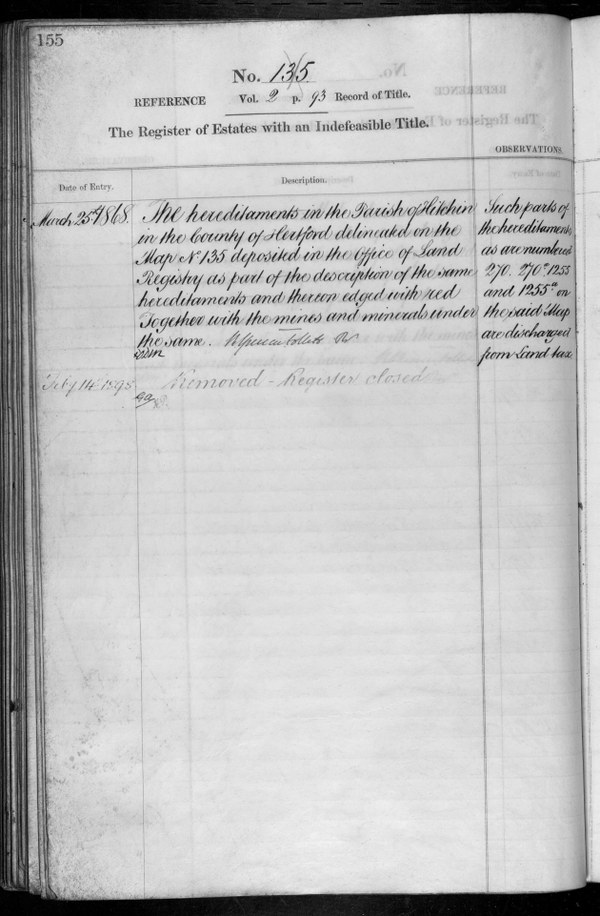 155
No. 135
REFERENCE Vol. 2 p. 93 Record of Title.
The Register of Estates with an Indefeasible Title.
OBSERVATIONS.
Date of Entry.
Description.
March 25th 1868.
The hereditaments in the Parish of Hitchin
in the County of Hertford delineated on the
Map No 135 deposited in the Office of Land
Registry as part of the description of the same
hereditaments and thereon edged with red
Together with the mines and minerals under
the same.
Such parts of
the hereditaments
as are numbered
270. 270a 1255
and 1255a on
the said Map
are discharged
from Land tax
Feby 14 1895
Removed - Register closed